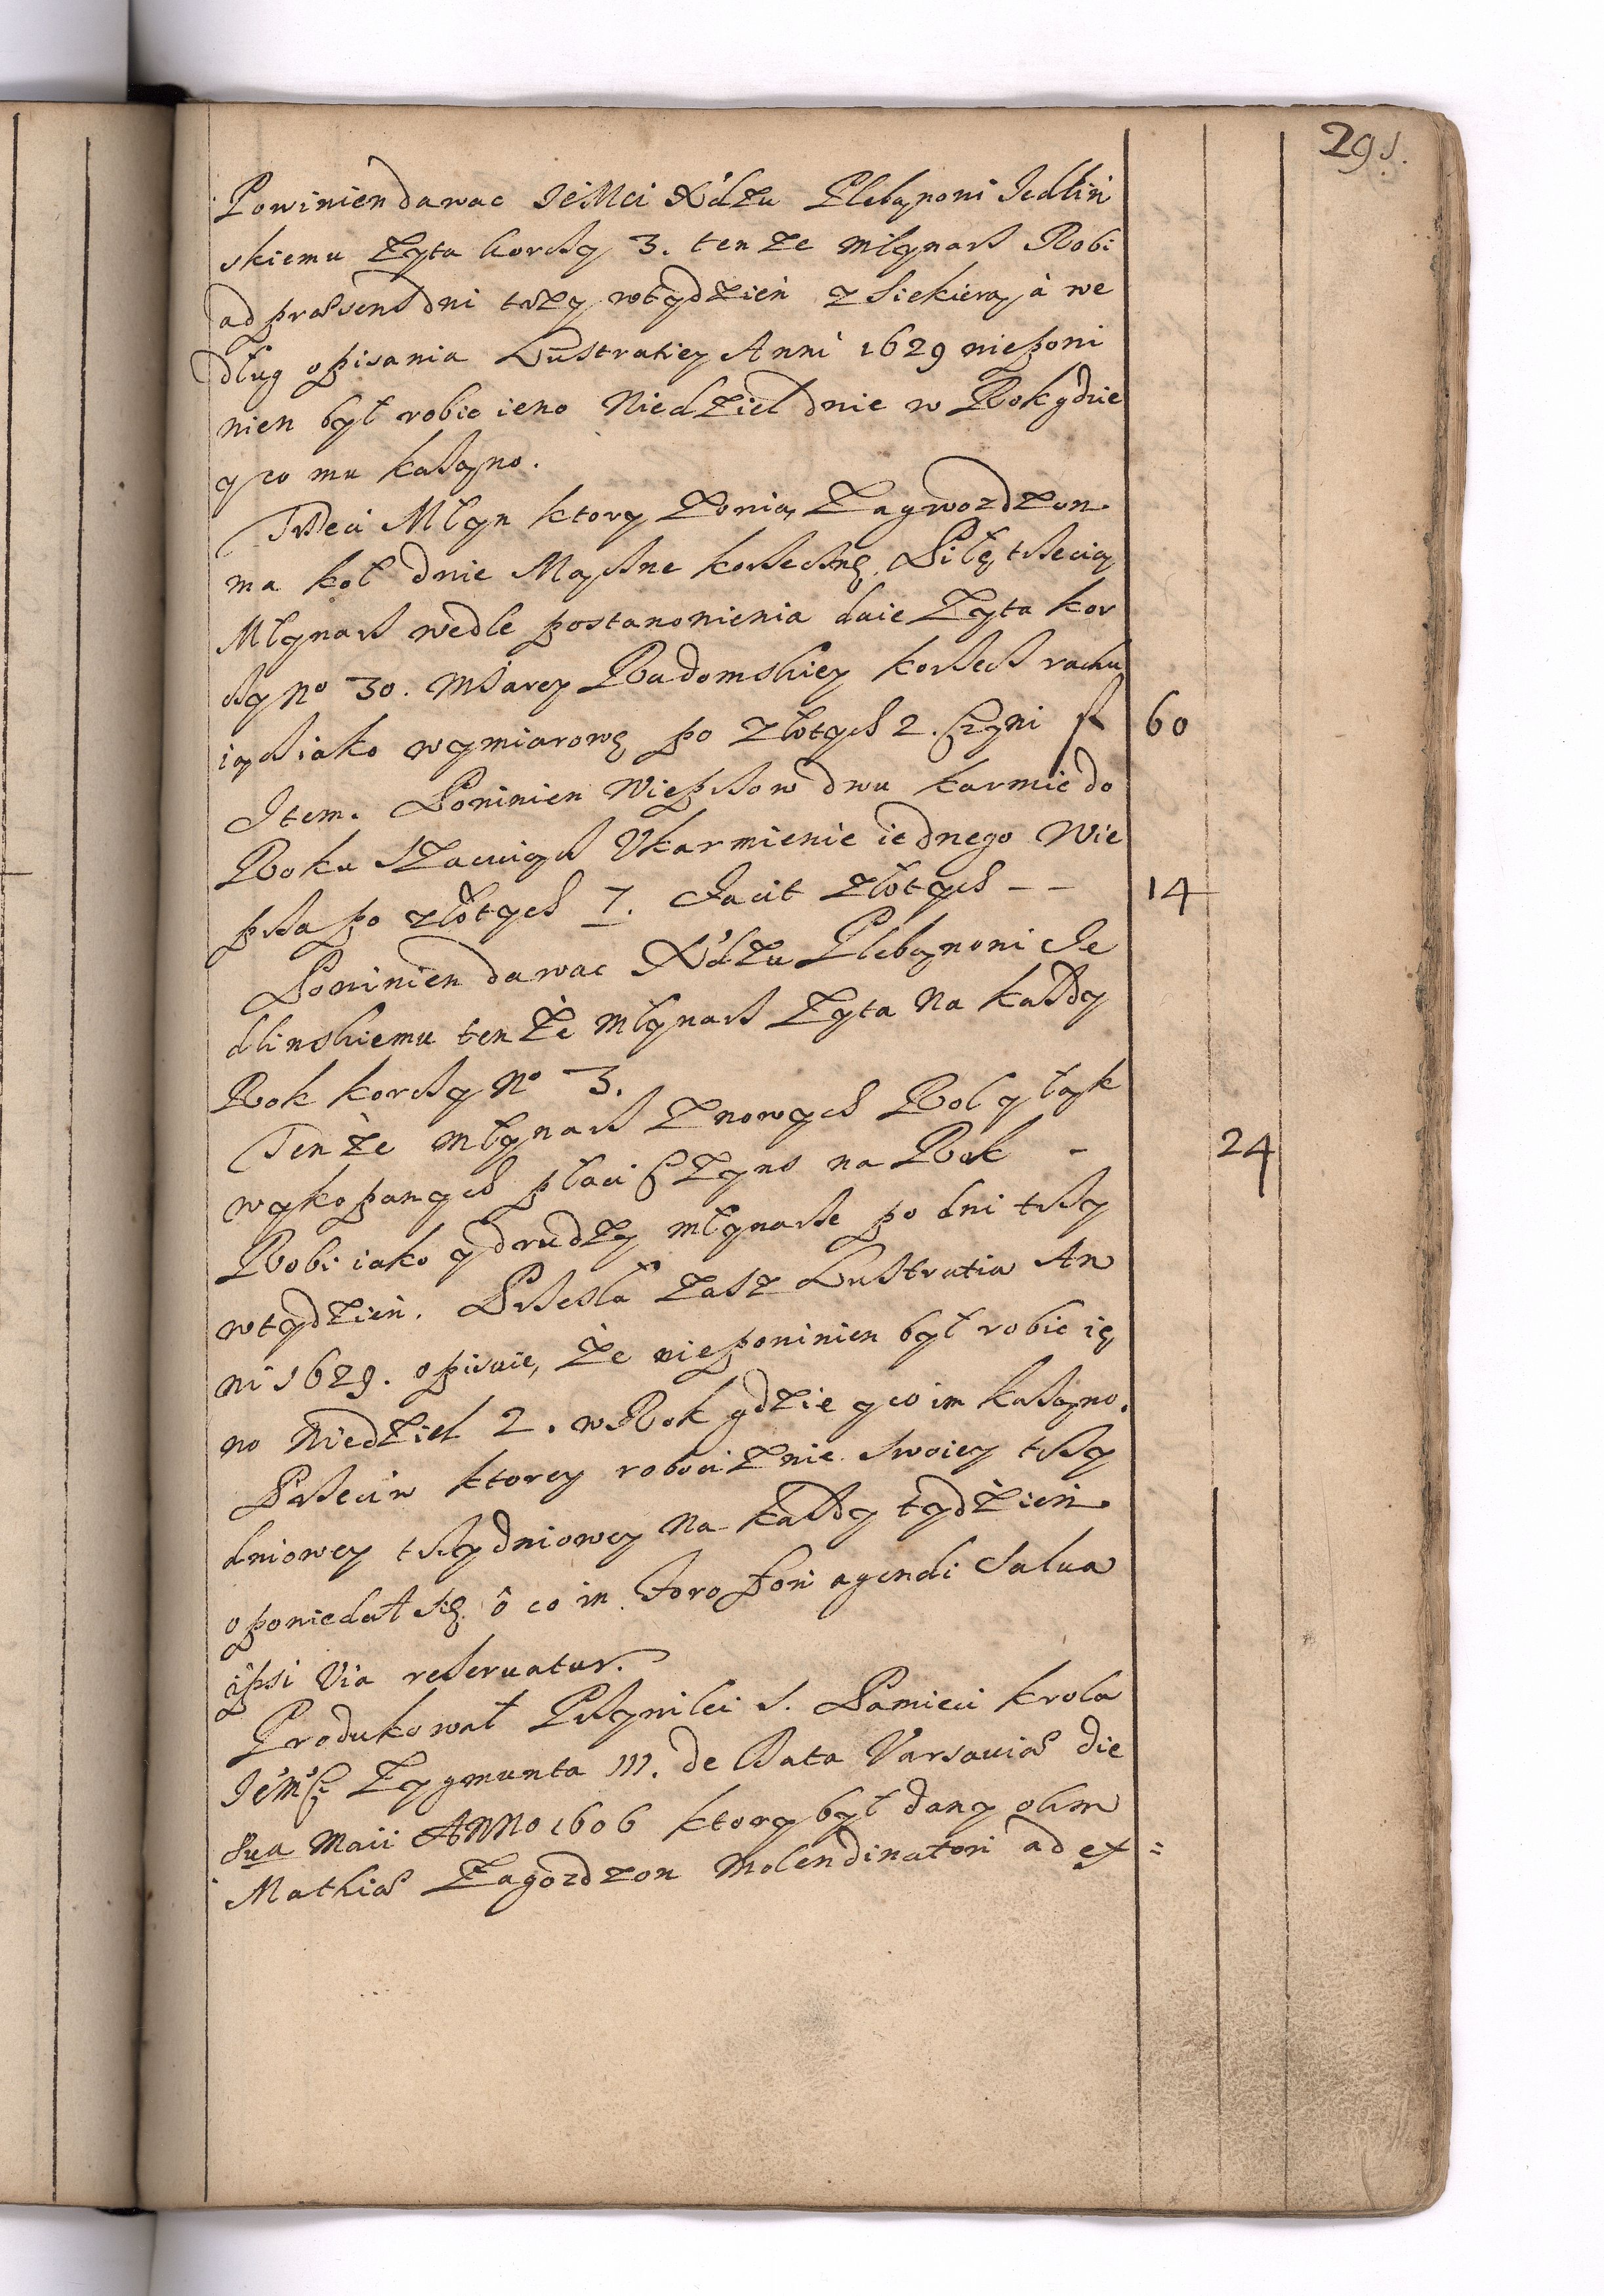 291.
Powinien dawac JeMci Xdzu Plebanowi Jedlin
skiemu Zyta korcy 3. tenze Młynarz Robi
ad præsens dni trzy w tydzień z Siekierą à we
dług opisania Lustratiey Anni 1629 niepowi
nien był robic ieno Niedziel dwie w Rok gdzie
y co mu kazano.
Trzeci Młyn ktory zowią Zagwozdzon
ma koł dwie Mączne korzeczne Piłę trzecią
Młynarz wedle postanowienia daie Zyta kor
cy No 30. Miarey Radomskiey korzecz rachu
iącz iako wymiarowę po złotych 2. czyni f 60
Item. Powinien Wieprzow dwu karmic do
Roku Szacuiąc Vkarmienie iednego Wie
prza po złotych 7. Facit złotych - - 14
Powinien dawac Xdzu Plebanowi Je
dlinskiemu tenże Młynarz Zyta Na kazdy
Rok korcy No 3.
Tenże Młynarz Z nowych Rol y łąk
wykopanych płaci Czyns na Rok - 24
Robi iako y drudzy młynarze po dni trzy
w tydzień. Przeszła zasz Lustratia An
ni 1629. opisuie, że niepowinien był robic ię
no Niedziel 2. w Rok gdzie y co im kazano.
Przeciw ktorey robociznie swoiey trzy
dniowey trzydniowey Na kazdy tydzień
opowiedał się ô co in Foro fori agendi Salua
ipsi Via reseruatur.
Produkował Przywilei S. Pamieci krola
JeMci Zygmunta III. de Data Varsauiæ die
Sua Maii ANNo 1606 ktory był dany olim
Mathiæ Zagozdzon Molendinatori ad ex =